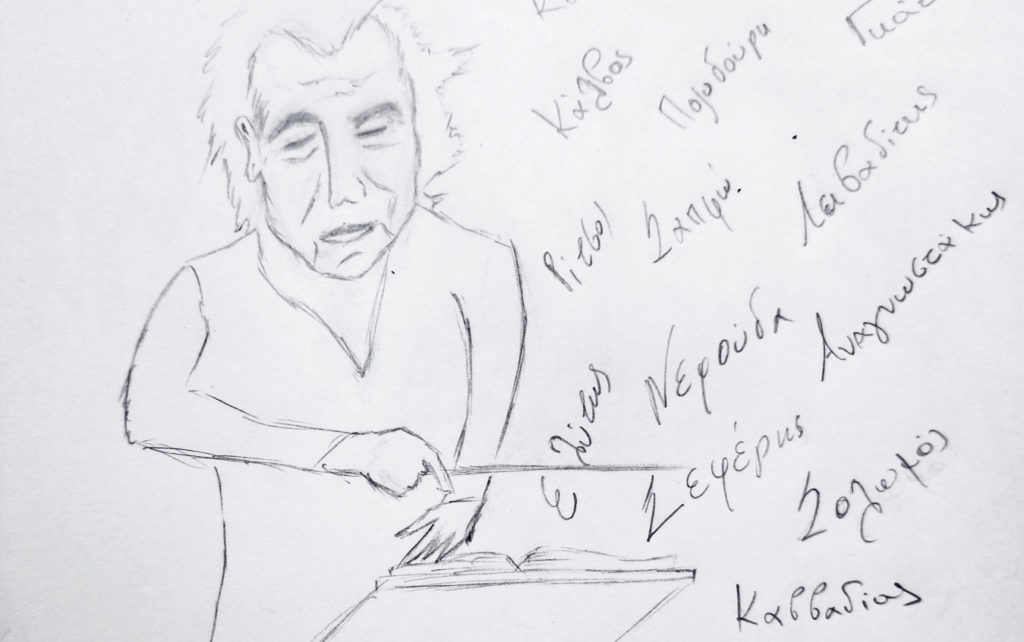 Κάλβος
Πολυδούρη
Ρίτσος
Σαπφώ.
Λειβαδίτης
Ελύτης
Νερούδα
Αναγνωστάκης
Σεφέρης
Σολωμός
Καββαδίας